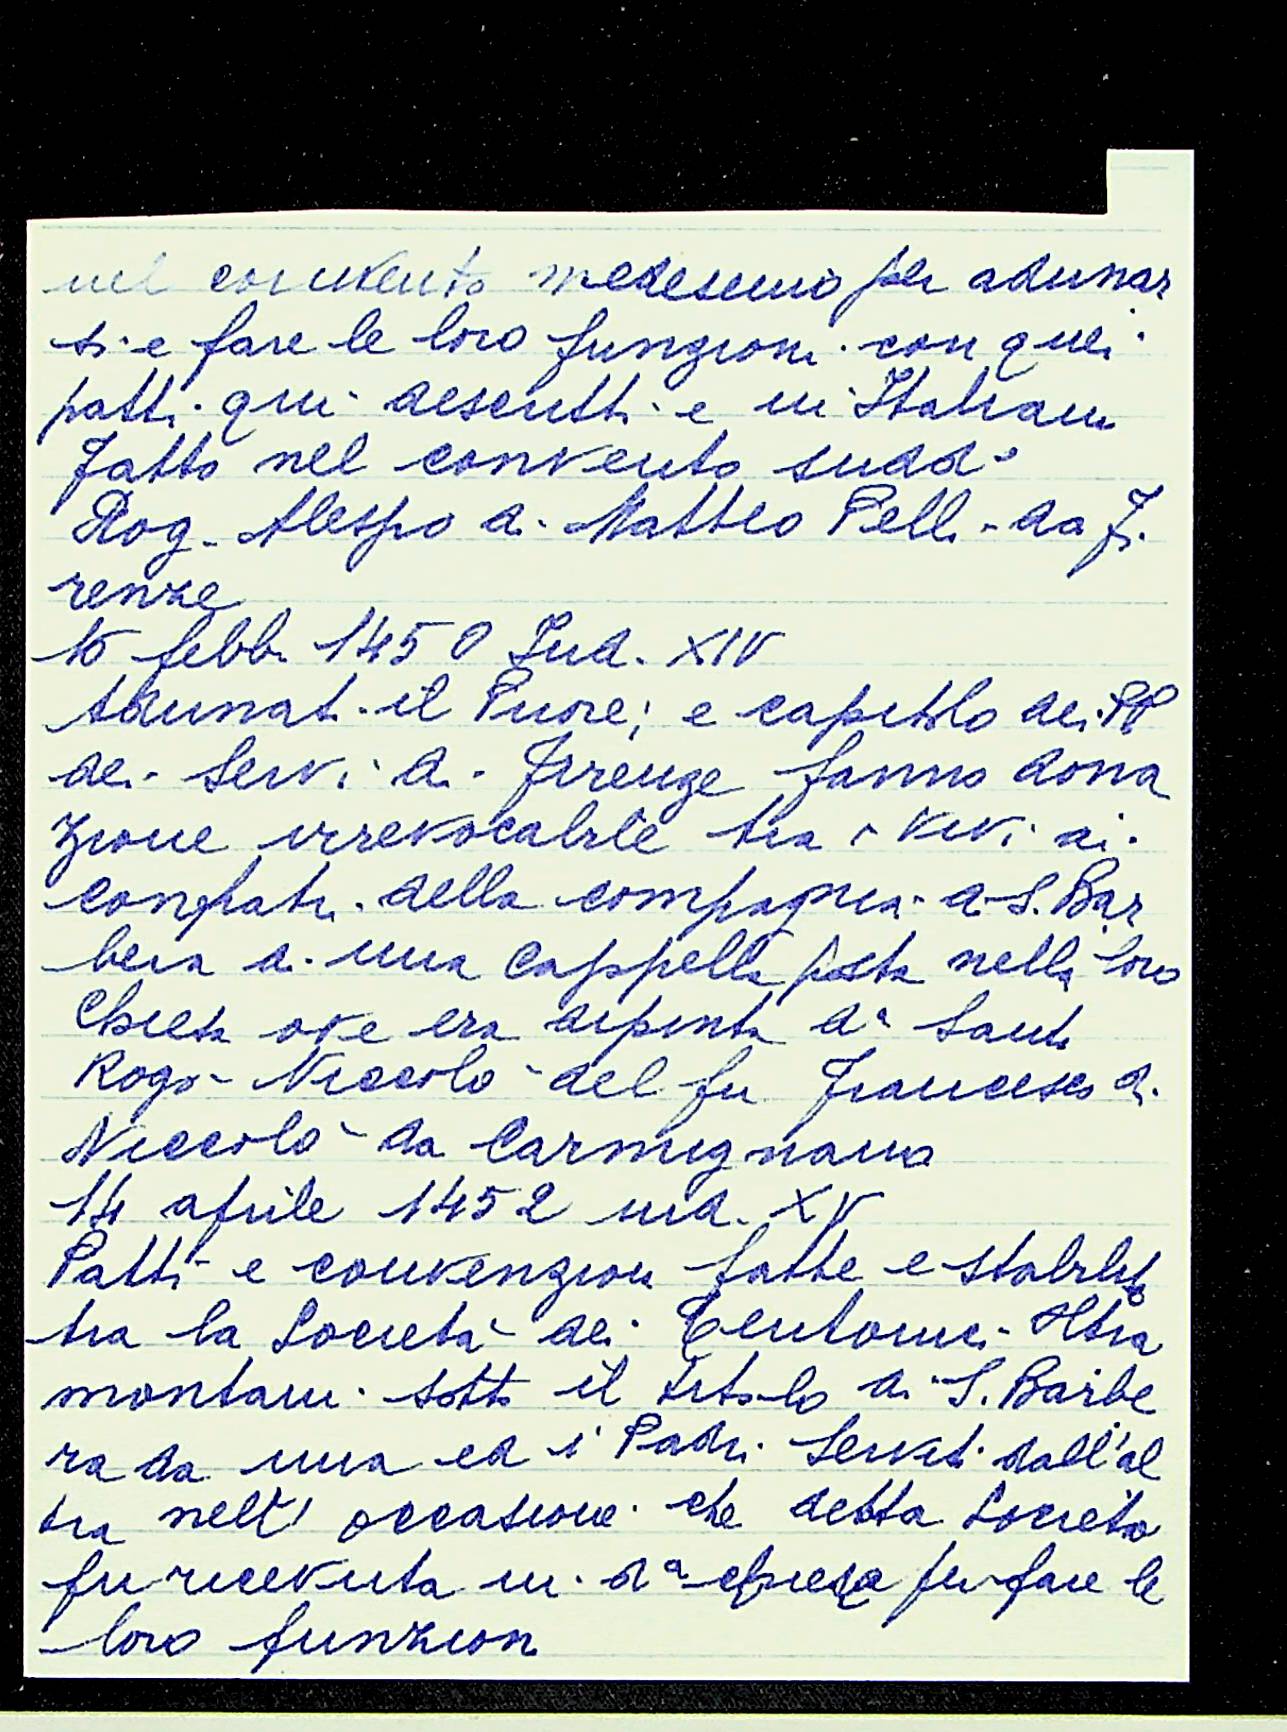 nel convento medesimo per adunar
si e fare le loro funzioni con quei
patti qui descritti e in Italiano
Fatto nel convento sudd°
Rog. Alespo di Matteo Pelli da Fi
renze
10 febb. 1450 Ind. XIV
Adunati il Priore, e capitolo dei PP
dei Servi di Firenze fanno dona
zione irrevocabile tra i vivi ai
confratri della compagnia di S. Bar
bera di una cappella posta nella loro
Chiesa ove era dipinta dª Santa
Rogò Niccolò del fu Francesco di
Niccolò da Carmignano
14 aprile 1452 ind. XV
Patti e convenzioni fatte e stabilite
tra la Società dei Teutonici Oltra
montani sotto il titolo di S. Barbe
ra da una ed i Padri Serviti dall'al
tra nell' occasione che detta Società
fu ricevuta in dª chiesa per fare le
loro funzioni